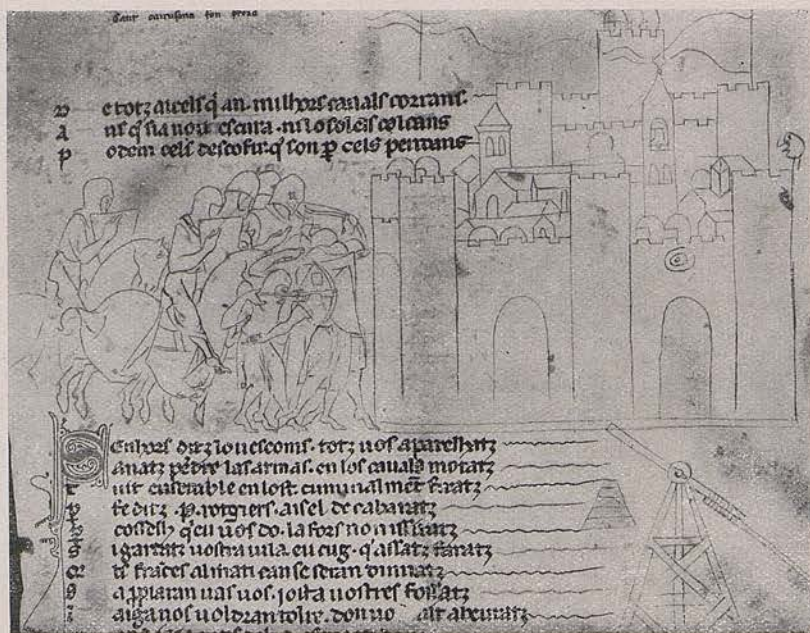 Cant carcasona fon preza
D e totz aicels q̃ an · milhors cauals corrans ·
A ns q̃ sia noit escura · ni lo soleis colcans
P odem cels descofir · q̃ son ꝑ cels pendans
Senhors ditz lo uescoms · totz uos aparelhatz
Anatz pẽdre las armas · en los cauals mõtatz
T uit ensemble en lost · cuminalmẽt firatz
ꝑ fe ditz · P · rotgiers · aisel de cabaratz
ꝑ cosselh q̃ eu uos do · la fors non issiratz
S i gardatz uostra uila · eu cug · q̃ assatz faratz
Q li frãces al mati can se seran dirnatz
S apꝓiaran uas uos · iosta uostres fossatz
aiga nos uoldran tolre · don uo alt abeuratz